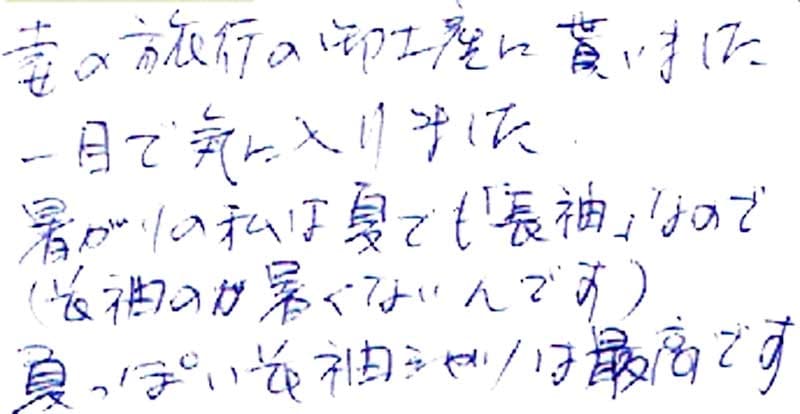 妻の旅行の御土産に貰いました
一目で気に入りました
暑がりの私は夏でも「長袖」なので
(長袖のが暑くないんです)
夏っぽい長袖シャツは最高です